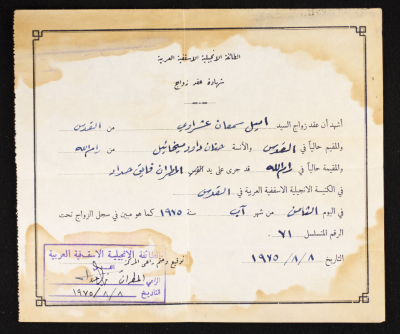 الطائفة الانجيلية الاسقفية العربية
شهادة عقد زواج
أشهد أن عقد زواج السيد اميل سمعان عشراوي من القدس
والمقيم حالياً في القدس والآنسة حنان داود ميخائيل من رام الله
والمقيمة حالياً في رام الله قد جرى على يد القس المطران فايق حداد
في الكنيسة الانجيلية الاسقفية العربية في القدس
في اليوم الثامن من شهر آب سنة ١٩٧٥ كما هو مبين في سجل الزواج تحت
الرقم المتسلسل ٧١
التاريخ ٨/٨/١٩٧٥
توقيع وختم راعي المركز
الطائفة الإنجيلية الاسقفية العربية
القدس
الراعي المطران
التاريخ ٨/٨/١٩٧٥